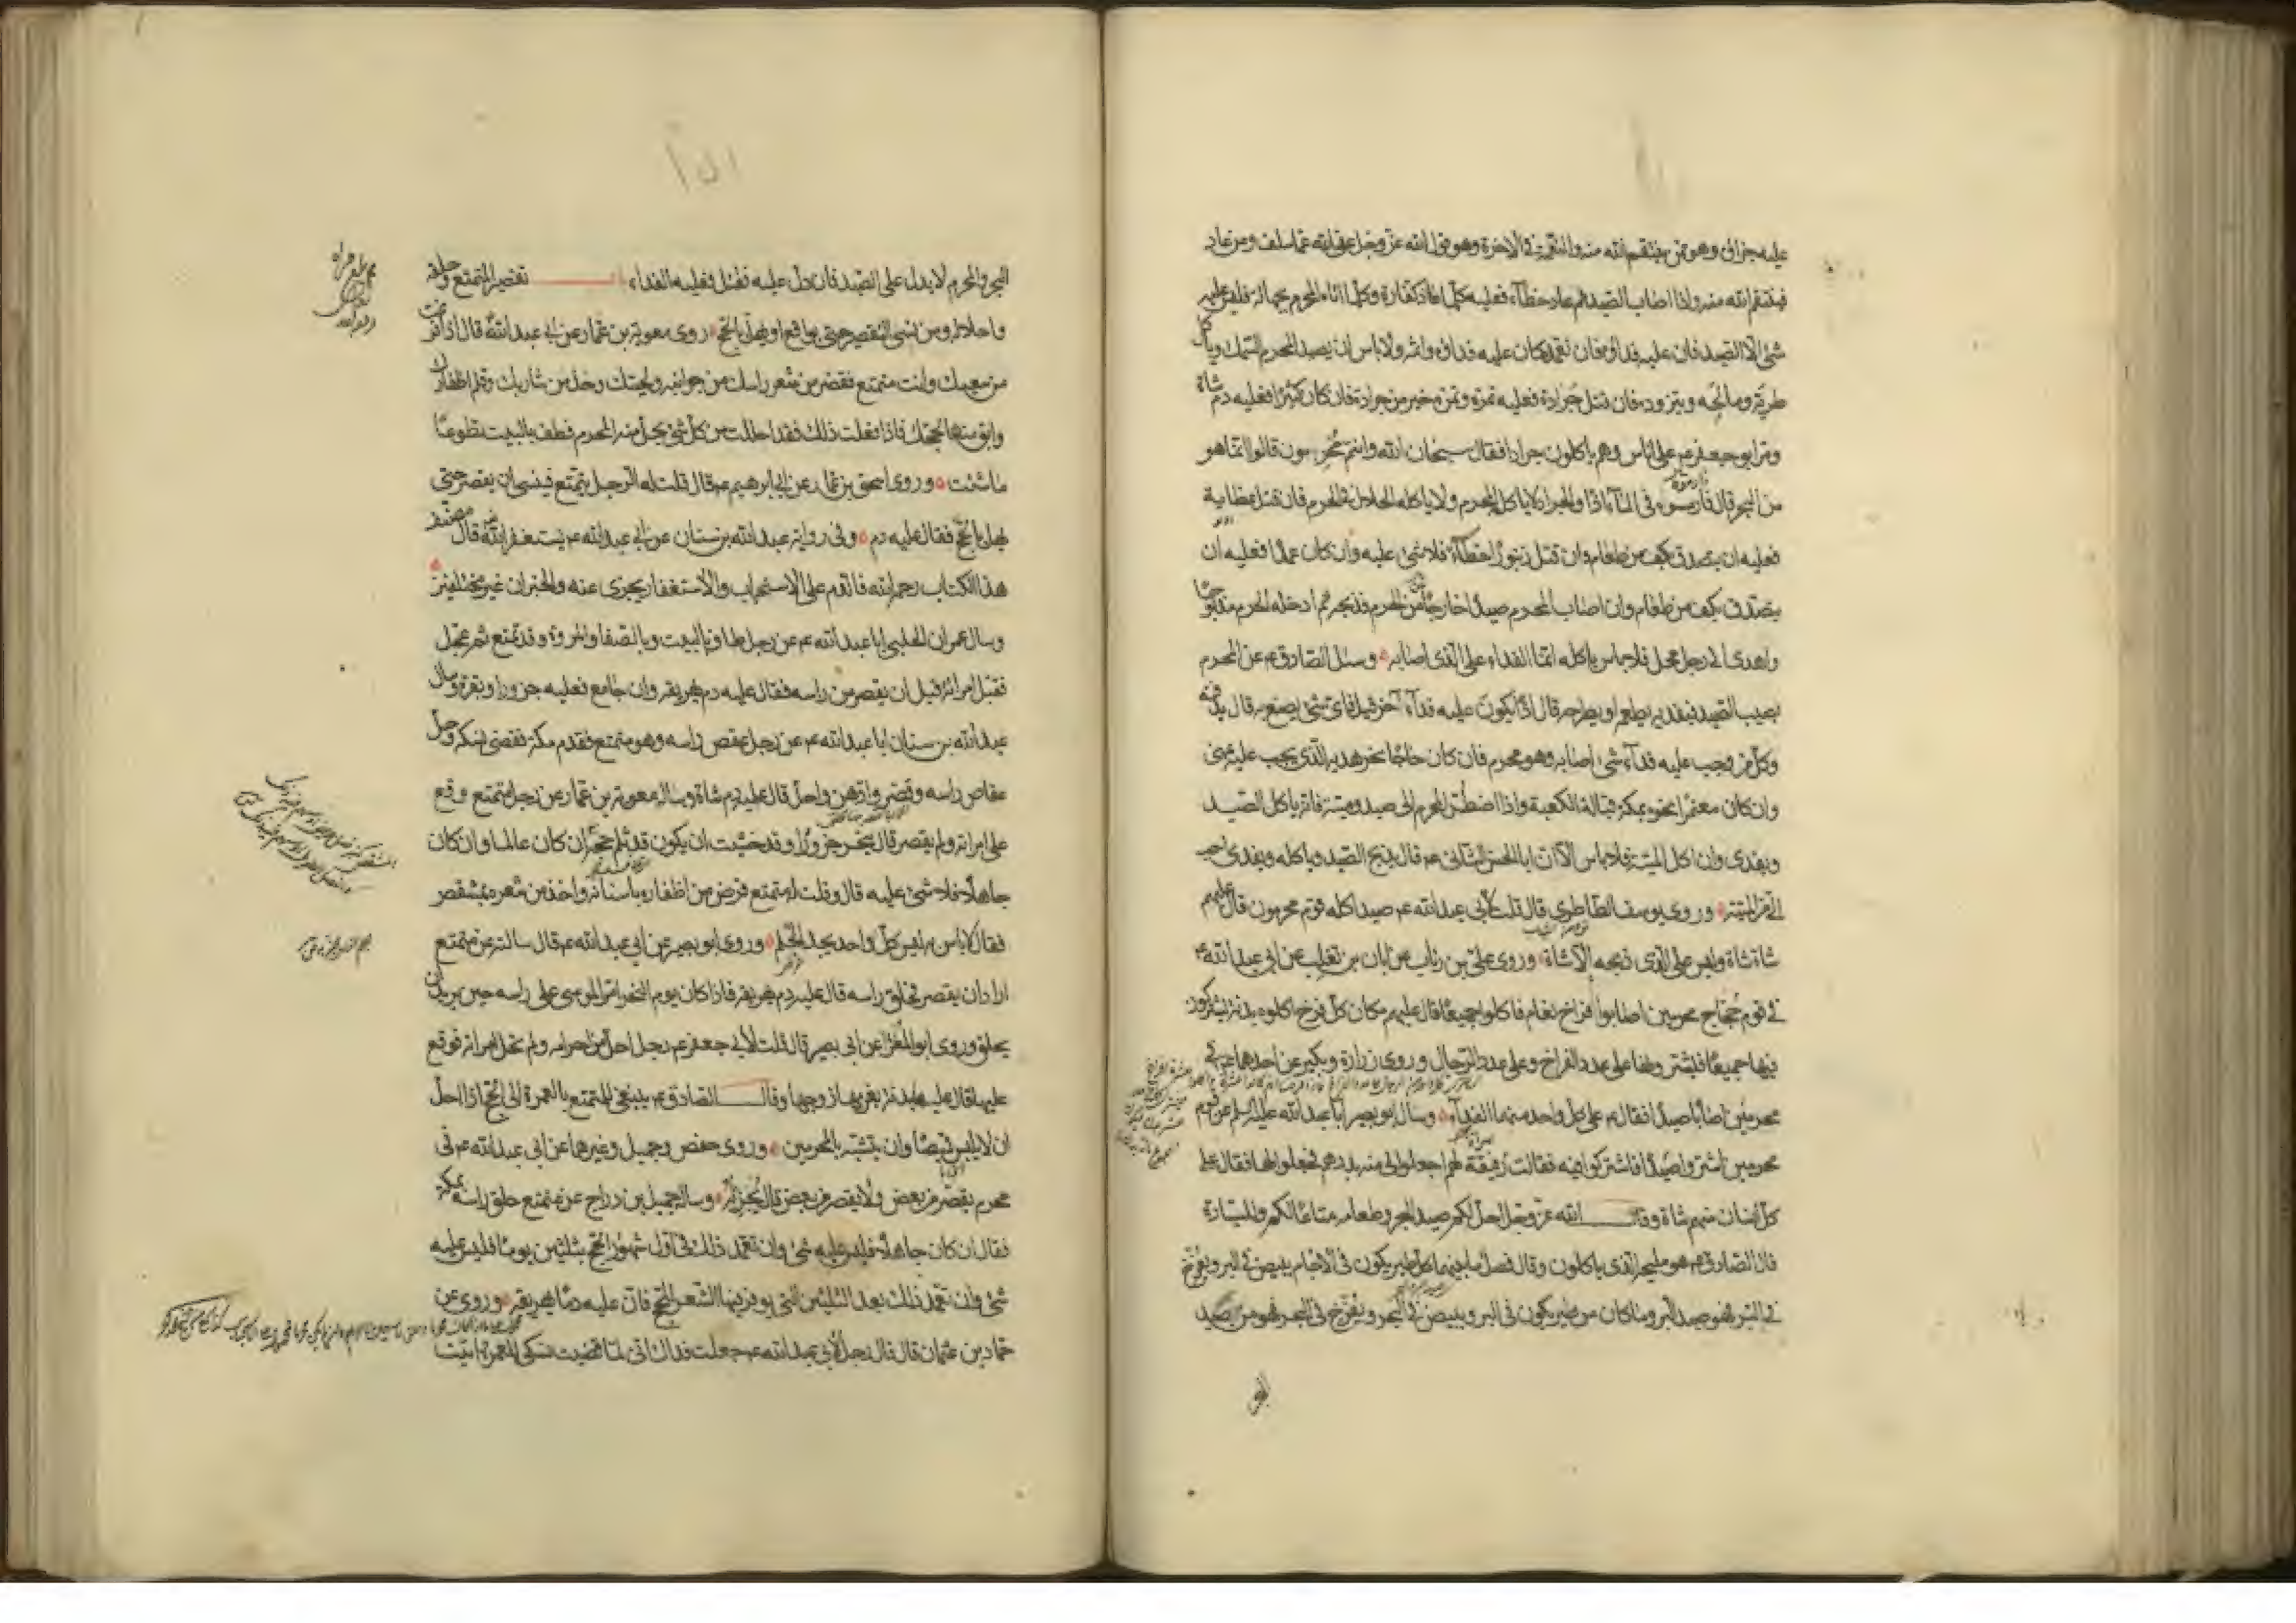 عليه جزاؤه وهو ممن ينتقم الله منه والنقمة في الاخرة وهو قول الله عز وجل عفا الله عما سلف ومن عاد
فينتقم الله منه واذا اصاب الصيد ثم عاد خطآء فعليه كلما عاد كفارة وكلما اتاه المحرم بجهالة فليس عليه
شئ الا الصيد فان عليه فداؤه فان تعمد كان عليه فداؤه واثمه ولا باس ان يصيد المحرم السمك وياكل
طريه ومالحه ويتزوده فان قتل جرادة فعليه تمرة وتمرة خير من جرادة فان كان كثيرا فعليه دم شاة
ومر ابو جعفر ع على الناس وهم ياكلون جرادا فقال سبحان الله وانتم محرمون قالوا انما هو
من البحر قال فارمسوه في المآء اذا والجراد لا ياكله المحرم ولا ياكله الحلال في الحرم فان قتل عظاية
فعليه ان يتصدق بكف من طعام وان قتل زنبورا خطآء فلا شئ عليه وان كان عمدا فعليه ان
يتصدق بكف من طعام وان اصاب المحرم صيدا خارجا من الحرم فذبحه ثم ادخله الحرم مذبوحا
واهدى الى رجل محل فلا باس باكله انما الفداء على الذى اصابه وسئل الصادق ع عن المحرم
يصيب الصيد فيفديه يطعمه او يطرحه قال اذا يكون عليه فدآء آخر قيل فاى شئ يصنع به قال يدفنه
وكل من وجب عليه فدآء شئ اصابه وهو محرم فان كان حاجا نحر هديه الذى يجب عليه بمنى
وان كان معتمرا نحره بمكة قبالة الكعبة واذا اضطر المحرم الى صيد وميتة فانه ياكل الصيد
ويفدى وان اكل الميتة فلا باس الا ان ابا الحسن الثانى ع قال يذبح الصيد وياكله ويفدى احب
الى من الميتة وروى يوسف الطاطرى قال قلت لأبى عبد الله ع صيد اكله قوم محرمون قال عليهم
شاة شاة وليس على الذى ذبحه الا شاة وروى على بن رئاب عن ابان بن تغلب عن ابى عبد الله ع
في قوم حجاج محرمين اصابوا فراخ نعام فاكلوا جميعا قال عليهم مكان كل فرخ اكلوه بدنة يشتركون
فيها جميعا فيشترونها على عدد الفراخ وعلى عدد الرجال وروى زرارة وبكير عن احدهما ع في
محرمين اصابا صيدا فقال ع على كل واحد منهما الفدآء وسال ابو بصير ابا عبد الله عليه السلم عن قوم
محرمين اشتروا صيدا فاشتركوا فيه فقالت رفيقة لهم اجعلوا لى منه بدرهم فجعلوا لها فقال على
كل انسان منهم شاة وقال الله عز وجل احل لكم صيد البحر وطعامه متاعا لكم وللسيارة
قال الصادق ع هو مليحه الذى ياكلون وقال فصل ما بينهما كل طير يكون في الآجام يبيض في البر ويفرخ
في البر فهو صيد البر وما كان من طير يكون في البر ويبيض في البحر ويفرخ في البحر فهو من صيد
البحر
البحر والمحرم لا يدل على الصيد فان دل عليه فقتل فعليه الفداء تقصير المتمتع وحلقه
واحلاله ومن نسى التقصير حتى يواقع او يهل بالحج روى معوية بن عمار عن ابى عبد الله ع قال اذا فرغت
من سعيك وانت متمتع فقصر من شعر راسك من جوانبه ولحيتك وخذ من شاربك وقلم اظفارك
وابق منها لحجك فاذا فعلت ذلك فقد احللت من كل شئ يحل منه المحرم فطف بالبيت تطوعا
ما شئت وروى اسحق بن عمار عن ابى ابرهيم ع قال قلت له الرجل يتمتع فينسى ان يقصر حتى
يهل بالحج فقال عليه دم وفى رواية عبد الله بن سنان عن ابى عبد الله ع يستغفر الله قال مصنف
هذا الكتاب رحمه الله فالدم على الاستحباب والاستغفار يجزى عنه والخبران غير مختلفين
وسال عمران الحلبى ابا عبد الله ع عن رجل طاف بالبيت وبالصفا والمروة وقد تمتع ثم عجل
فقبل امراته قبل ان يقصر من راسه فقال عليه دم يهريقه وان جامع فعليه جزور او بقرة وسال
عبد الله بن سنان ابا عبد الله ع عن رجل عقص راسه وهو متمتع فقدم مكة فقضى نسكه وحل
عقاص راسه وقصر وادهن واحل قال عليه دم شاة وساله معوية بن عمار عن رجل متمتع وقع
على امراته ولم يقصر قال ينحر جزورا وقد خشيت ان يكون قد ثلم حجه ان كان عالما وان كان
جاهلا فلا شئ عليه قال وقلت له متمتع قرض من اظفاره باسنانه واخذ من شعره بمشقص
فقال لا باس به ليس كل واحد يجد الجلم وروى ابو بصير عن ابى عبد الله ع قال سالته عن متمتع
اراد ان يقصر فحلق راسه قال عليه دم يهريقه فاذا كان يوم النحر امر الموسى على راسه حين يريد ان
يحلق وروى ابو المغرا عن ابى بصير قال قلت لأبى جعفر ع رجل احل من احرامه ولم تحل امراته فوقع
عليها قال عليها بدنة يغرمها زوجها وقال الصادق ع ينبغى للمتمتع بالعمرة الى الحج اذا احل
ان لا يلبس قميصا وان يتشبه بالمحرمين وروى حفص وجميل وغيرهما عن ابى عبد الله ع فى
محرم يقصر من بعض ولا يقصر من بعض قال يجزئه وساله جميل بن دراج عن متمتع حلق راسه بمكة
فقال ان كان جاهلا فليس عليه شئ وان تعمد ذلك فى اول شهور الحج بثلثين يوما فليس عليه
شئ وان تعمد ذلك بعد الثلثين التى يوفر فيها الشعر للحج فان عليه دما يهريقه وروى عن
حماد بن عثمان قال قال رجل لأبى عبد الله ع جعلت فداك انى لما قضيت نسكى للعمرة اتيت